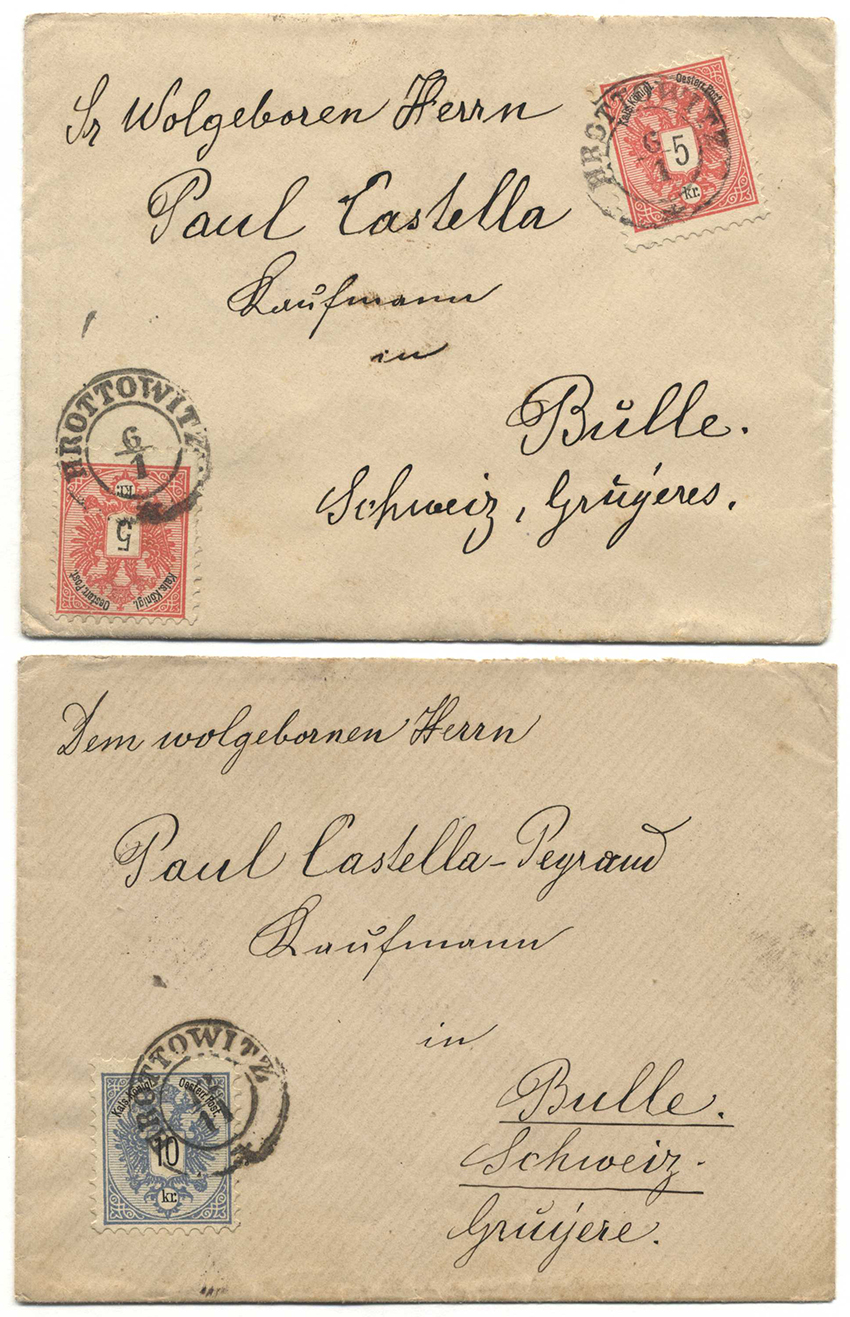 Sr Wolgeboren Herrn
Paul Castella
Kaufmann
in
Bulle.
Schweiz, Gruÿeres.
Kais. Königl. Oesterr. Post.
5
kr.
HROTTOWITZ
6
1
HROTTOWITZ
6
1
kr.
5
Kais. Königl. Oesterr. Post.
Dem wolgebornen Herrn
Paul Castella-Peyraud
Kaufmann
in
Bulle.
Schweiz.
Gruÿere.
HROTTOWITZ
Kais. Königl. Oesterr. Post.
10
kr.